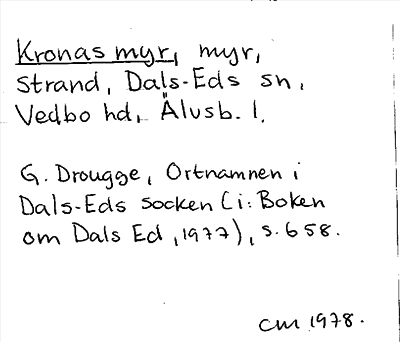 Kronas myr, myr,
Strand, Dals-Eds sn,
Vedbo hd, Älvsb. l.
G. Drougge, Ortnamnen i
Dals-Eds socken (i: Boken
om Dals Ed, 1977), s. 658.
CM 1978.